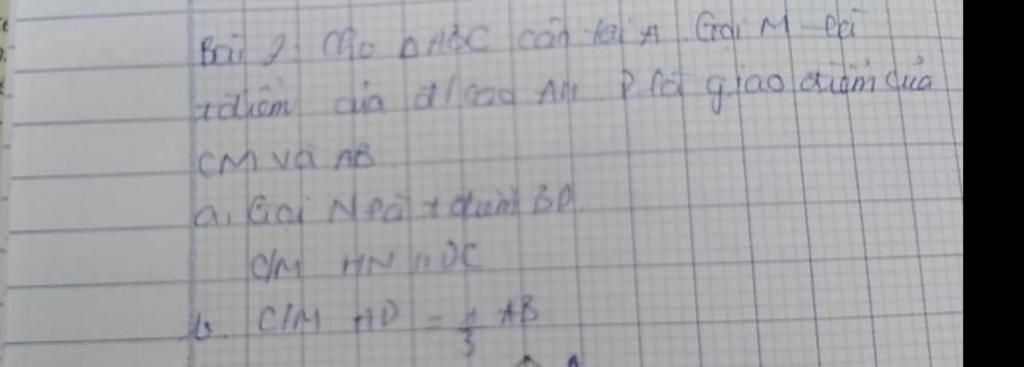 Bài 2. Cho ΔABC cân tại A. Gọi M là
t.điểm của đ/cao AH D là giao điểm của
CM và AB
a, Gọi N là t.điểm BD
C/M HN // DC
b. C/M AD = 1/3 AB